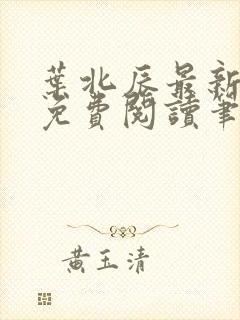 葉北辰最新
免費閱讀筆
黃玉清